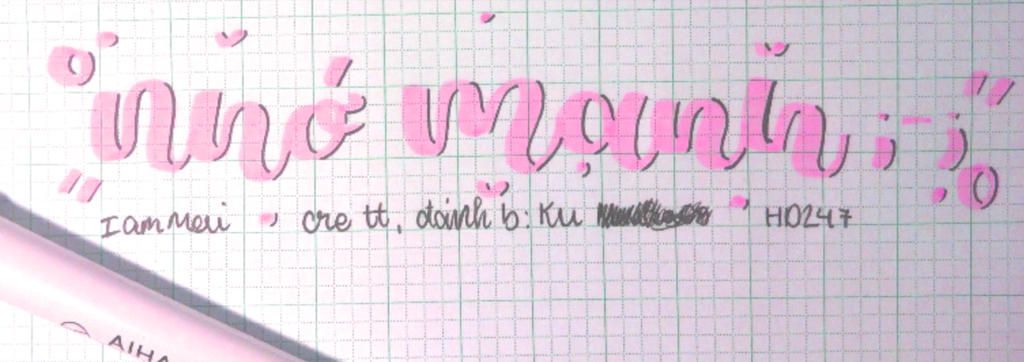 nhớ mạnh ;-;
I am Meii , cre tt, dainh b: Ku , HD247
AIHA